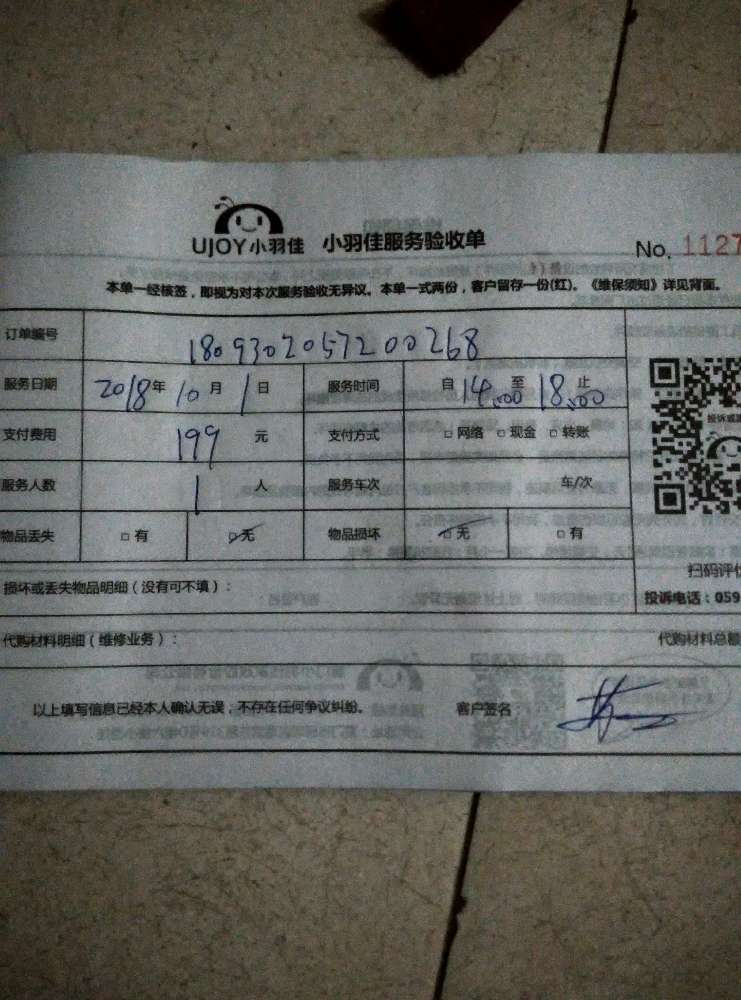 UJOY小羽佳 小羽佳服务验收单
No. 1127
本单一经核签，即视为对本次服务验收无异议。本单一式两份，客户留存一份(红)。《维保须知》详见背面。
订单编号 1809302057200268
服务日期 2018年10月1日 服务时间 自14:00至18:00止
支付费用 199元 支付方式 □网络 □现金 □转账
服务人数 1人 服务车次 车/次
物品丢失 □有 □无 物品损坏 □无 □有
投诉或
扫码评
损坏或丢失物品明细（没有可不填）：
投诉电话：059
代购材料明细（维修业务）： 代购材料总额
以上填写信息已经本人确认无误，不存在任何争议纠纷。 客户签名：